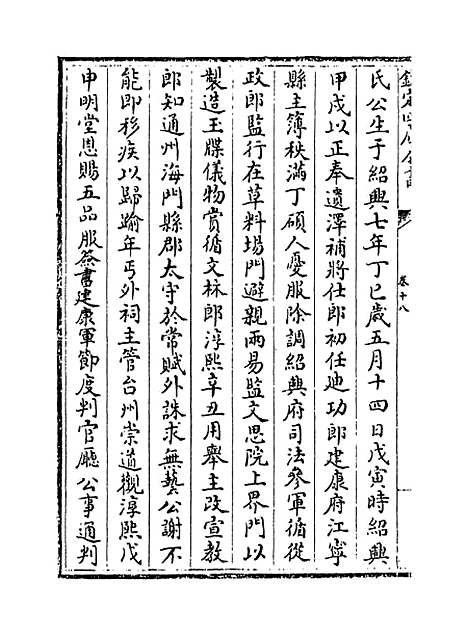 欽定四庫全書
卷十八
氏公生于紹興七年丁巳歲五月十四日戊寅時紹興
甲戌以正奉遺澤補將仕郎初任迪功郎建康府江寧
縣主簿秩滿丁碩人憂服除調紹興府司法參軍循從
政郎監行在草料場門避親兩易監文思院上界門以
製造玉牒儀物賞循文林郎淳熙辛丑用舉主改宣教
郎知通州海門縣郡太守於常賦外誅求無藝公謝不
能即移疾以歸踰年丐外祠主管台州崇道觀淳熙戊
申明堂恩賜五品服簽書建康軍節度判官廳公事通判